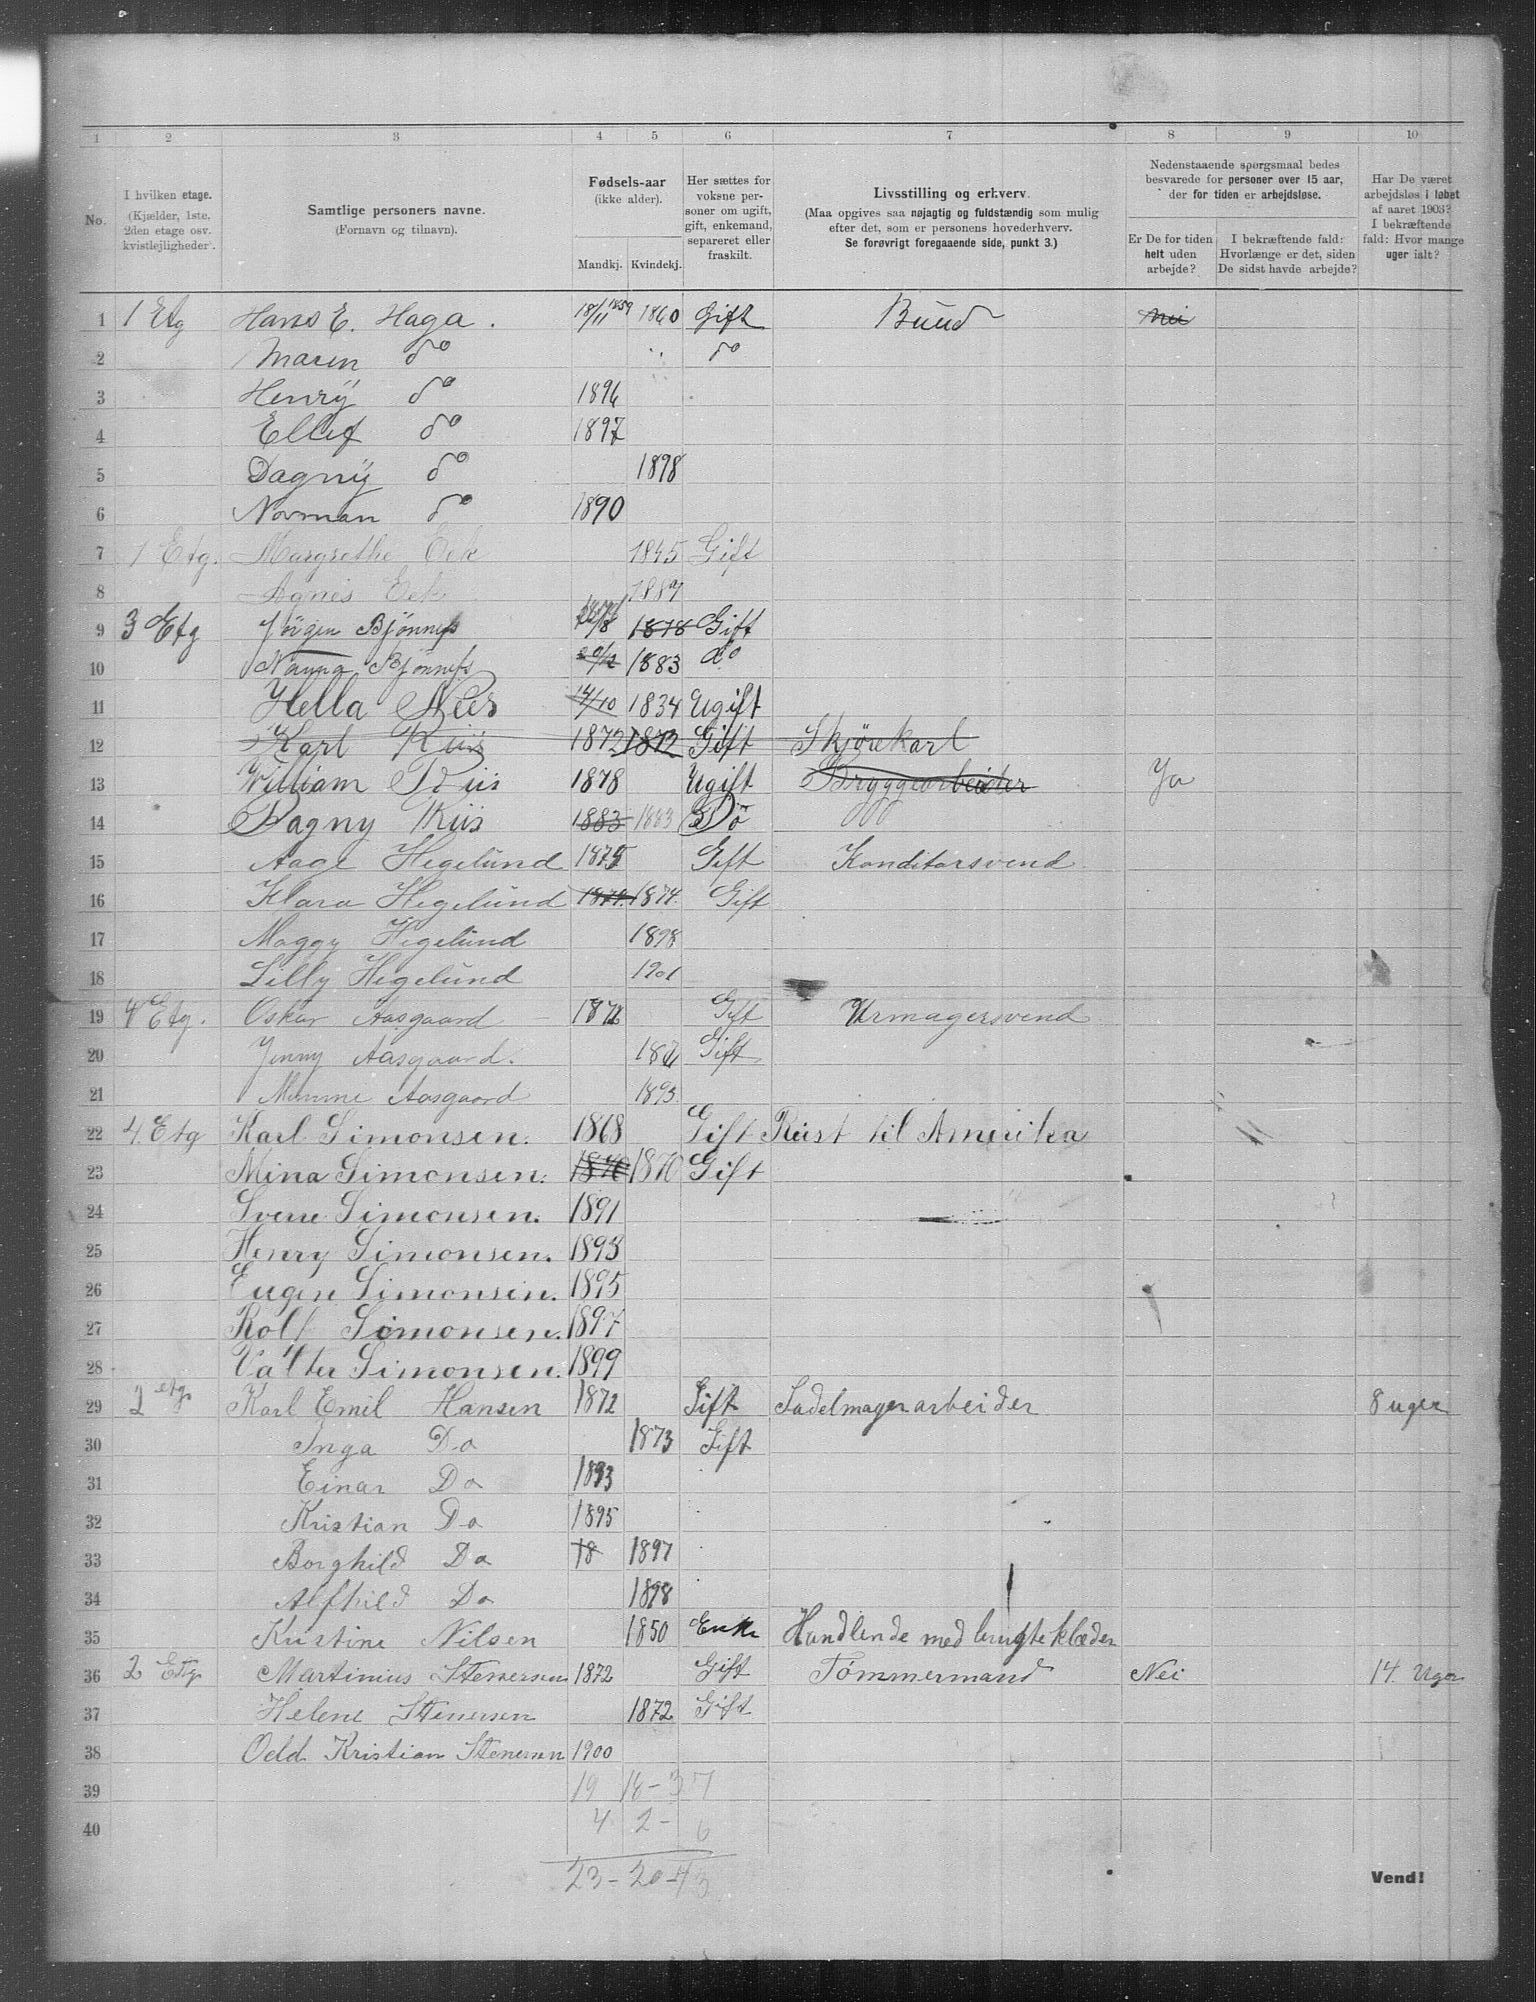 1 2 3 4 5 6 7 8 9 10
No.
I hvilken etage.
(Kjælder, 1ste,
2den etage osv.
kvistlejligheder.
Samtlige personers navne.
(Fornavn og tilnavn).
Fødsels-aar
(ikke alder).
Mandkj. Kvindekj.
Her sættes for
voksne per-
soner om ugift,
gift, enkemand,
separeret eller
fraskilt.
Livsstilling og erhverv.
(Maa opgives saa nøjagtig og fuldstændig som mulig
efter det, som er personens hovederhverv.
Se forøvrigt foregaaende side, punkt 3.)
Nedenstaaende spørgsmaal bedes
besvarede for personer over 15 aar,
der for tiden er arbejdsløse.
Er De for tiden
helt uden
arbejde?
I bekræftende fald:
Hvorlænge er det, siden
De sidst havde arbejde?
Har De været
arbejdsløs i løbet
af aaret 1903?
I bekræftende
fald: Hvor mange
uger ialt?
1 1 Etg Hans E. Haga. 18/11 1859 1860 Gift Buud Nei
2 Maren do do
3 Henrÿ do 1896
4 Ellef do 1897
5 Dagnÿ do 1898
6 Norman do 1890
7 1 Etg. Margrethe Eek 1845 Gift
8 Agnes Eek 1889
9 3 Etg Jörgen Bjönness 1878 Gift
10 Nanna Bjönness 20/12 1883 do
11 Hella Neer 14/10 1834 Ugift
12 Karl Riis 1872 1872 Gift Skjørekarl
13 William Riis 1878 Ugift Bryggearbeider Ja
14 Dagny Riis 1883 1883 Do
15 Aage Hegelund 1875 Gift Konditorsvend
16 Klara Hegelund 1874. 1874. Gift
17 Maggy Hegelund 1898
18 Lilly Hegelund 1901
19 4 Etg. Oskar Aasgaard 1872 Gift Urmagersvend
20 Jenny Aasgaard. Gift
21 Aasgaard 1893
22 4. Etg Karl Simonsen. 1868 Gift Reist til Amerika
23 Mina Simonsen. 1870 1870 Gift
24 Sverre Simonsen. 1891
25 Henry Simonsen. 1893
26 Eugen Simonsen. 1895
27 Rolf Simonsen. 1897
28 Valter Simonsen. 1899
29 2 etg. Karl Emil Hansen 1872 Gift Sadelmagerarbeider 8 uger
30 Inga Do 1873 Gift
31 Einar Do 1893
32 Kristian Do 1895
33 Borghild Do 18 1897
34 Alfhild Do 1898
35 Kristine Nilsen 1850 Enke Handlende med brugte klæder
36 2 Etg. Martinius Stenersen 1872 Gift Tømmermand Nei 14 Uger
37 Helene Stenersen 1872 Gift
38 Odd Kristian Stenersen 1900
39 19 18-37
40 4 2-6
23-20-43
Vend!